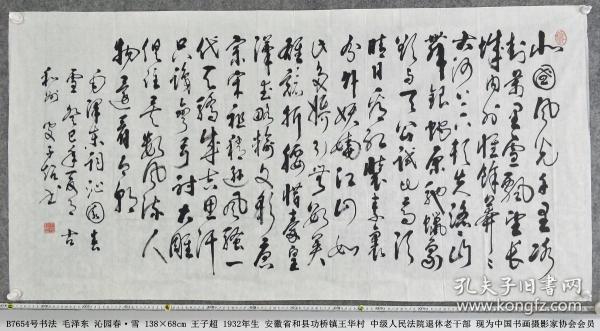 北国风光千里冰
封万里雪飘望长
城内外惟馀莽々
大河上下顿失滔々山
舞银蛇原驰蜡象
欲与天公试比高须
晴日看红装素裹
分外妖娆江山如
此多娇引无数英
雄竞折腰惜秦皇
汉武略输文彩唐
宗宋祖稍逊风骚一
代天骄成吉思汗
只识弯弓射大雕
俱往矣数风流人
物还看今朝
毛泽东词沁园春
雪癸巳年夏月古
和州叟子超书
孔夫子旧书网
B7654号书法 毛泽东 沁园春·雪 138×68cm 王子超 1932年生 安徽省和县功桥镇王华村 中级人民法院退休老干部 现为中国书画摄影家协会会员